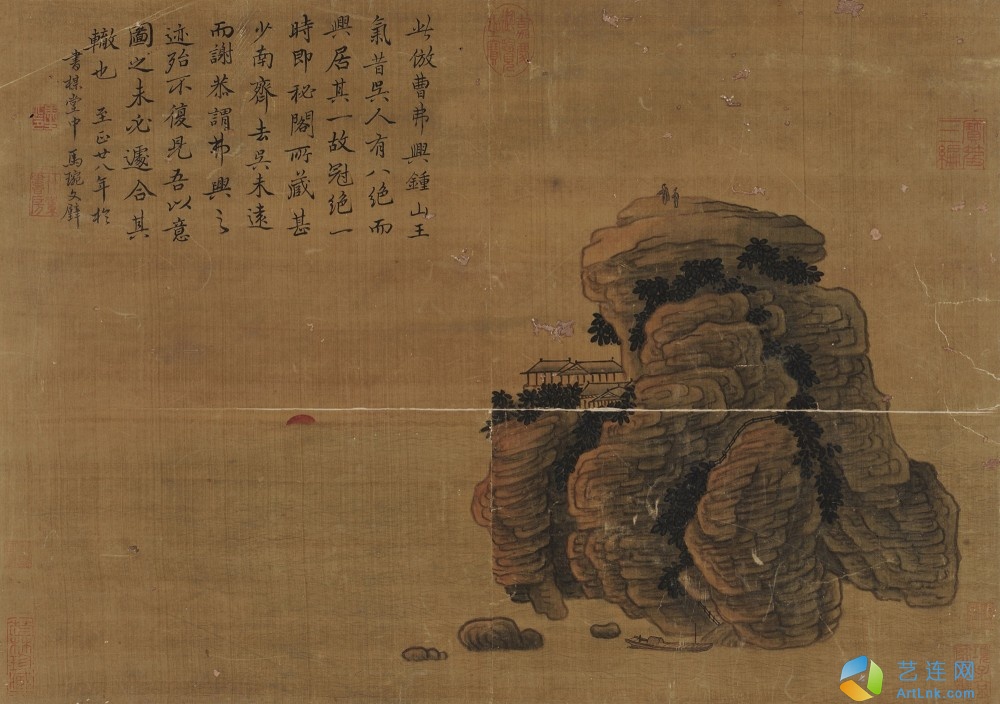 此倣曹弗興鍾山王
氣昔吳人有八絕而
興居其一故冠絕一
時即秘閣所藏甚
少南齊去吳未遠
而謝恭謂弗興之
迹殆不復見吾以意
圖之未必遽合其
轍也 至正廿八年於
書楳堂中 馬琬文璧
艺连网
ArtLnk.com